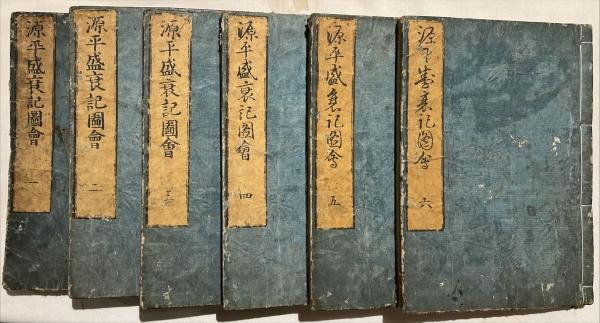 源平盛衰記圖會
一
源平盛衰記圖會
二
源平盛衰記圖會
三
源平盛衰記圖會
四
源平盛衰記圖會
五
源平盛衰記圖會
六